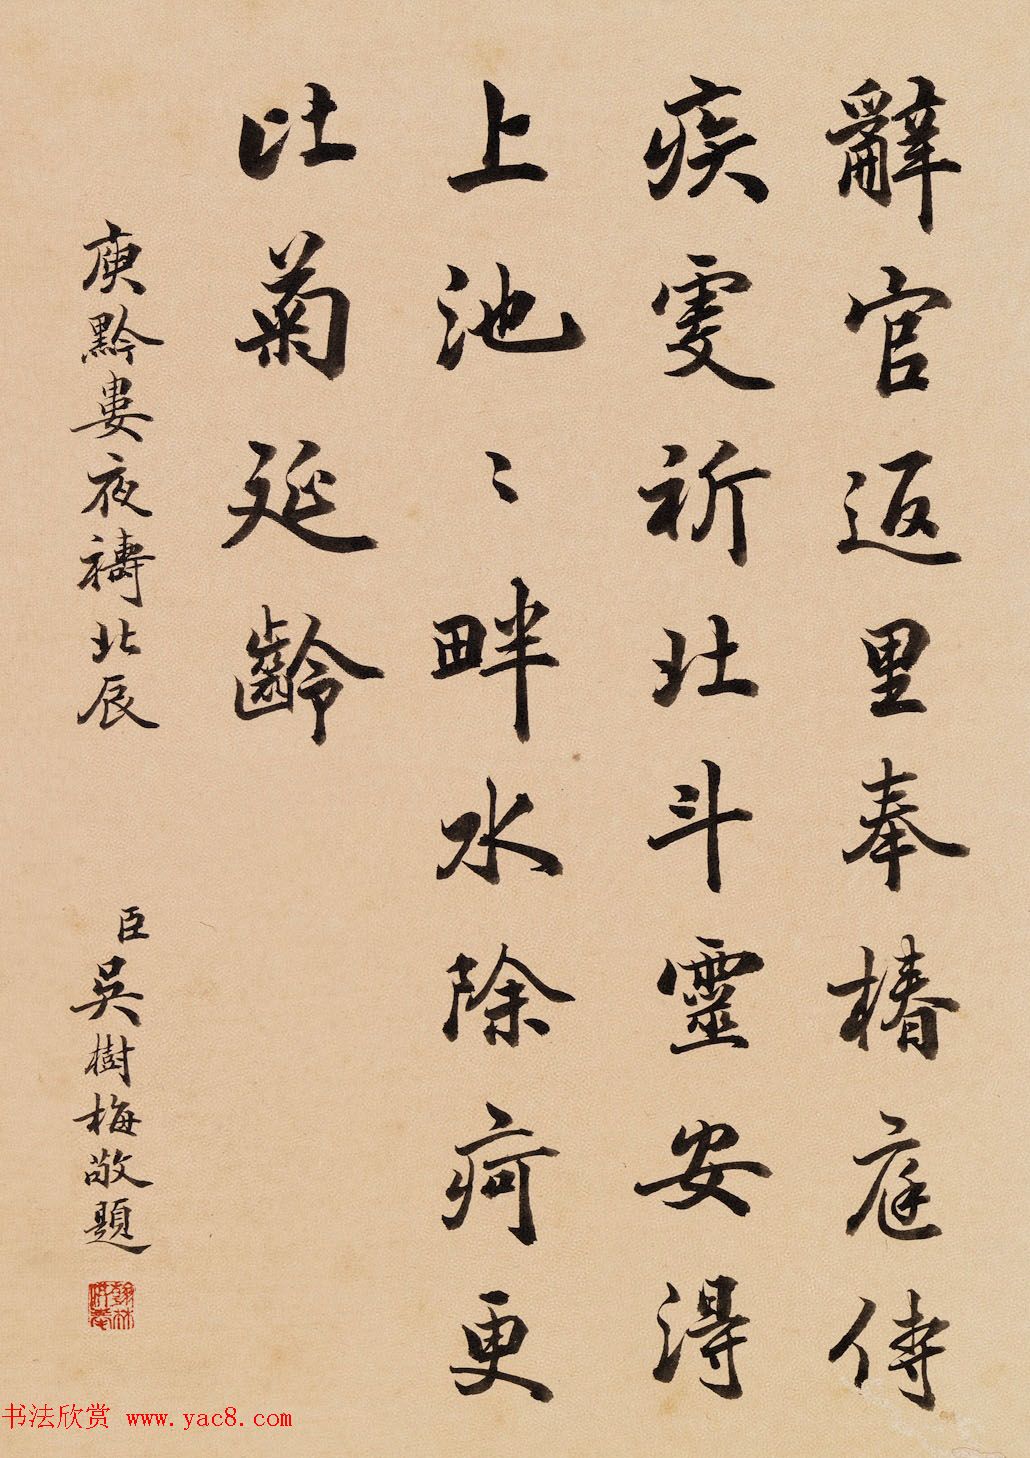 辭官返里奉椿庭侍
疾虔祈北斗靈安得
上池〻畔水除疴更
比菊延齡
庾黔婁夜禱北辰
臣吳樹梅敬題
翰林供奉
书法欣赏 www.yac8.com